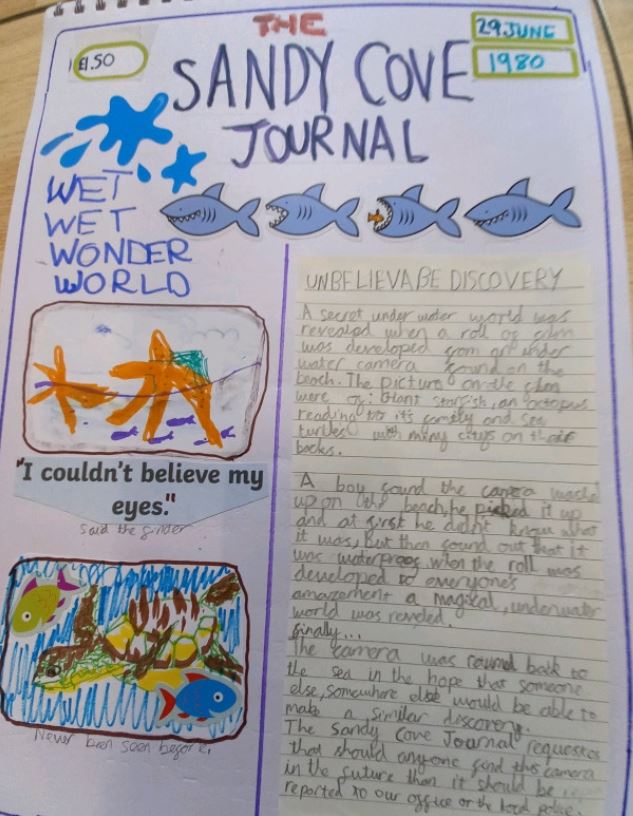 THE
SANDY COVE
JOURNAL
£1.50
29 JUNE
1980
WET
WET
WONDER
WORLD
"I couldn't believe my
eyes."
Said the finder
Never been seen before.
UNBELIEVABE DISCOVERY
A secret under water world was
revealed when a roll of film
was developed from an under
water camera found on the
beach. The picture on the film
were of: Giant starfish, an octopus
reading to it's family and sea
turtles with miny citys on their
backs.
A boy found the camera washed
up on the beach, he picked it up
and at first he didnt know what
it was, but then found out that it
was waterproof, when the roll was
developed to everyone's
amazement a magical, underwater
world was reveled.
finally...
The camera was back to
the sea in the hope that someone
else, somewhere else would be able to
make a similar discovery.
The Sandy Cove Journal requestes
that should anyone find this camera
in the future than it should be
reported to our office or the local police.